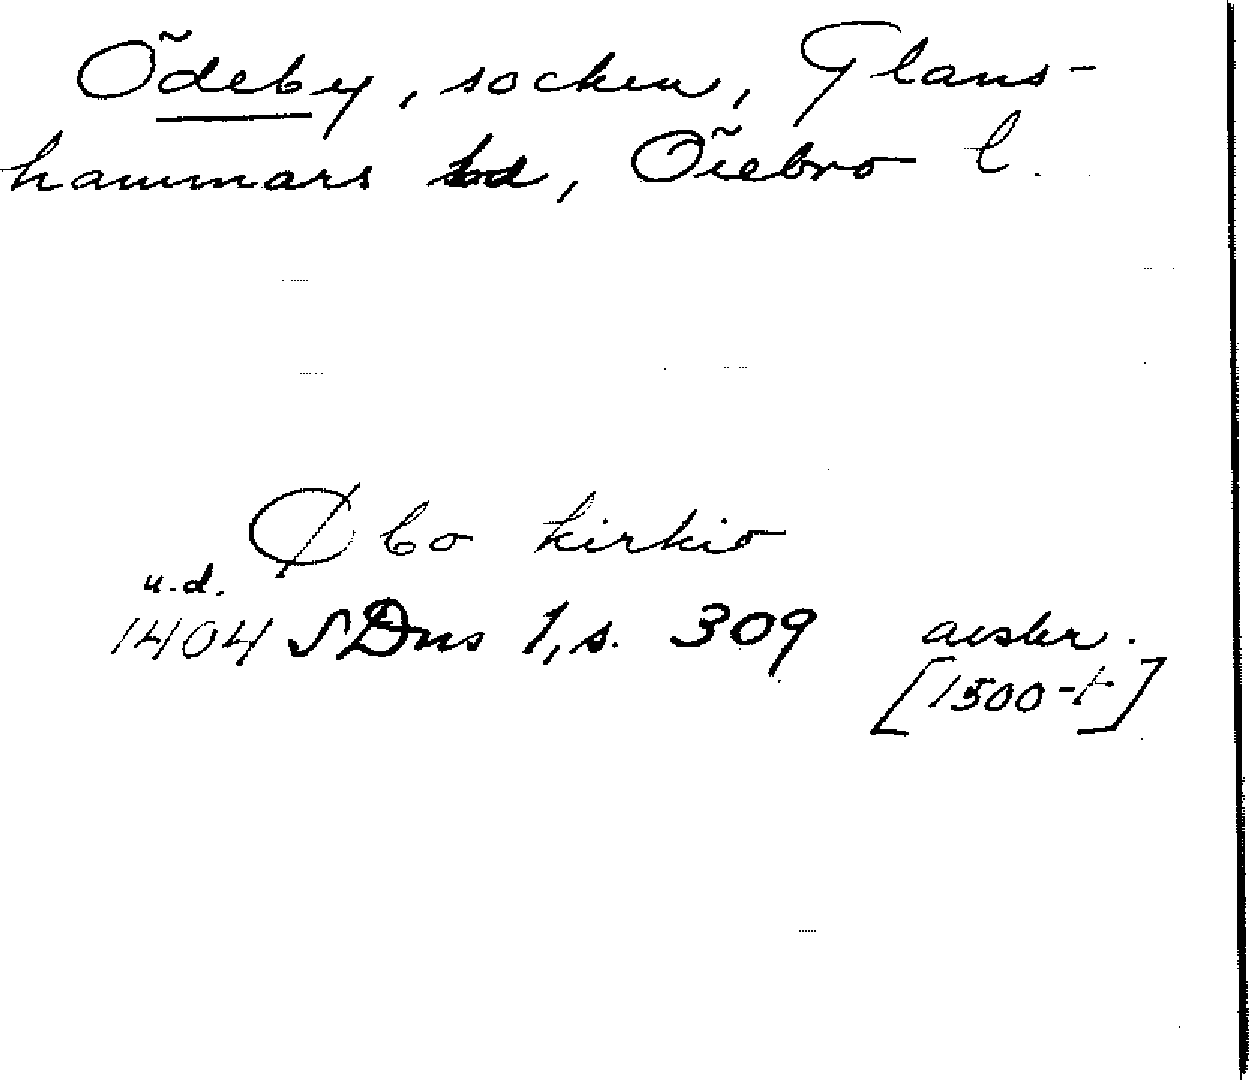 Ödeby, socken, Glans-
hammars hd, Örebro l.
Øbo kirkio
u.d.
1404 SDns 1, s. 309 avskr.
[1500-t]